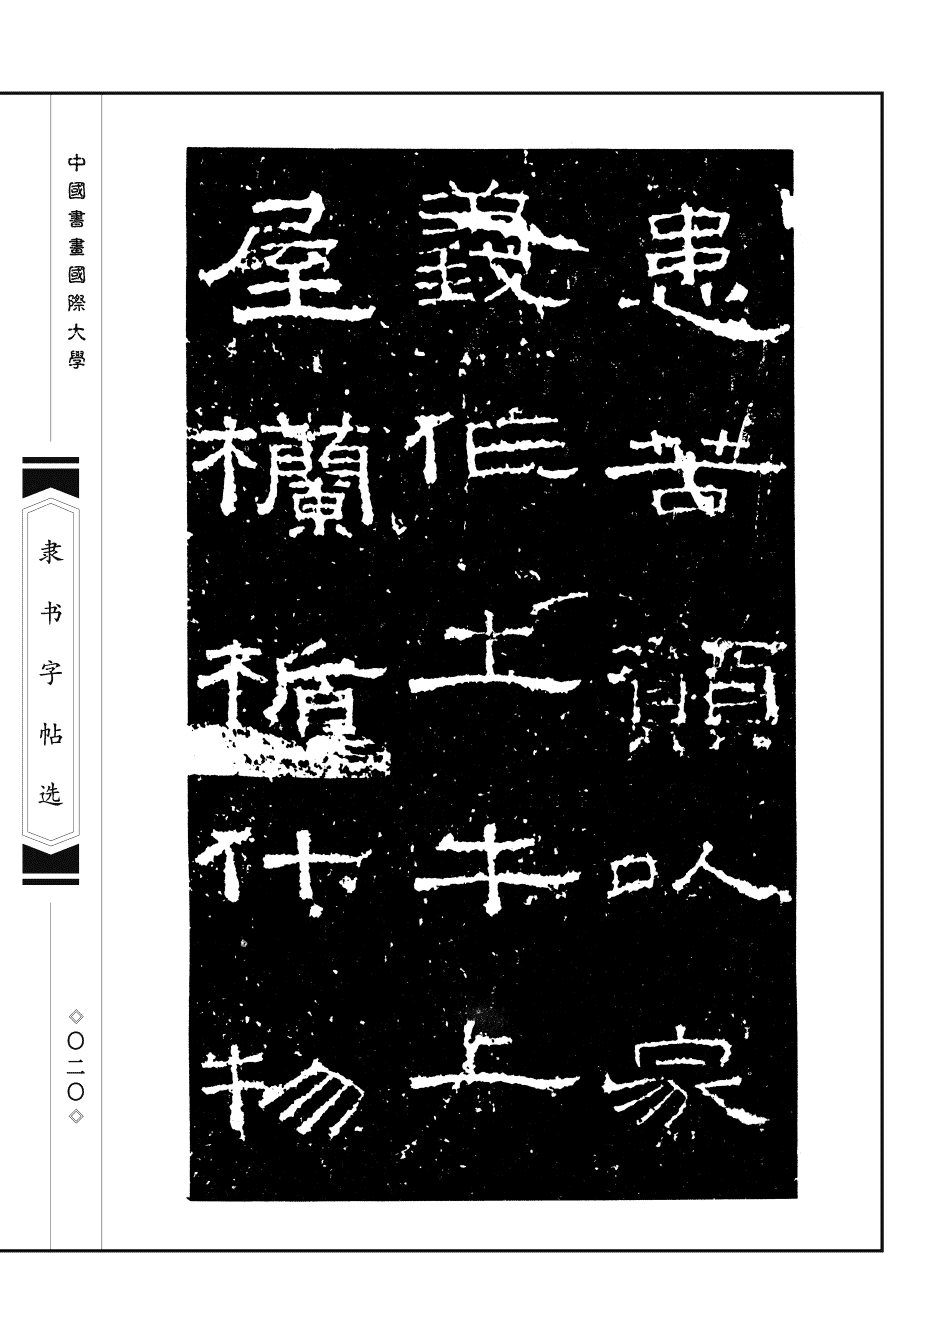 患苦願以家
義作土牛上
屋欄楯什物
中國書畫國際大學
隶书字帖选
〇二〇